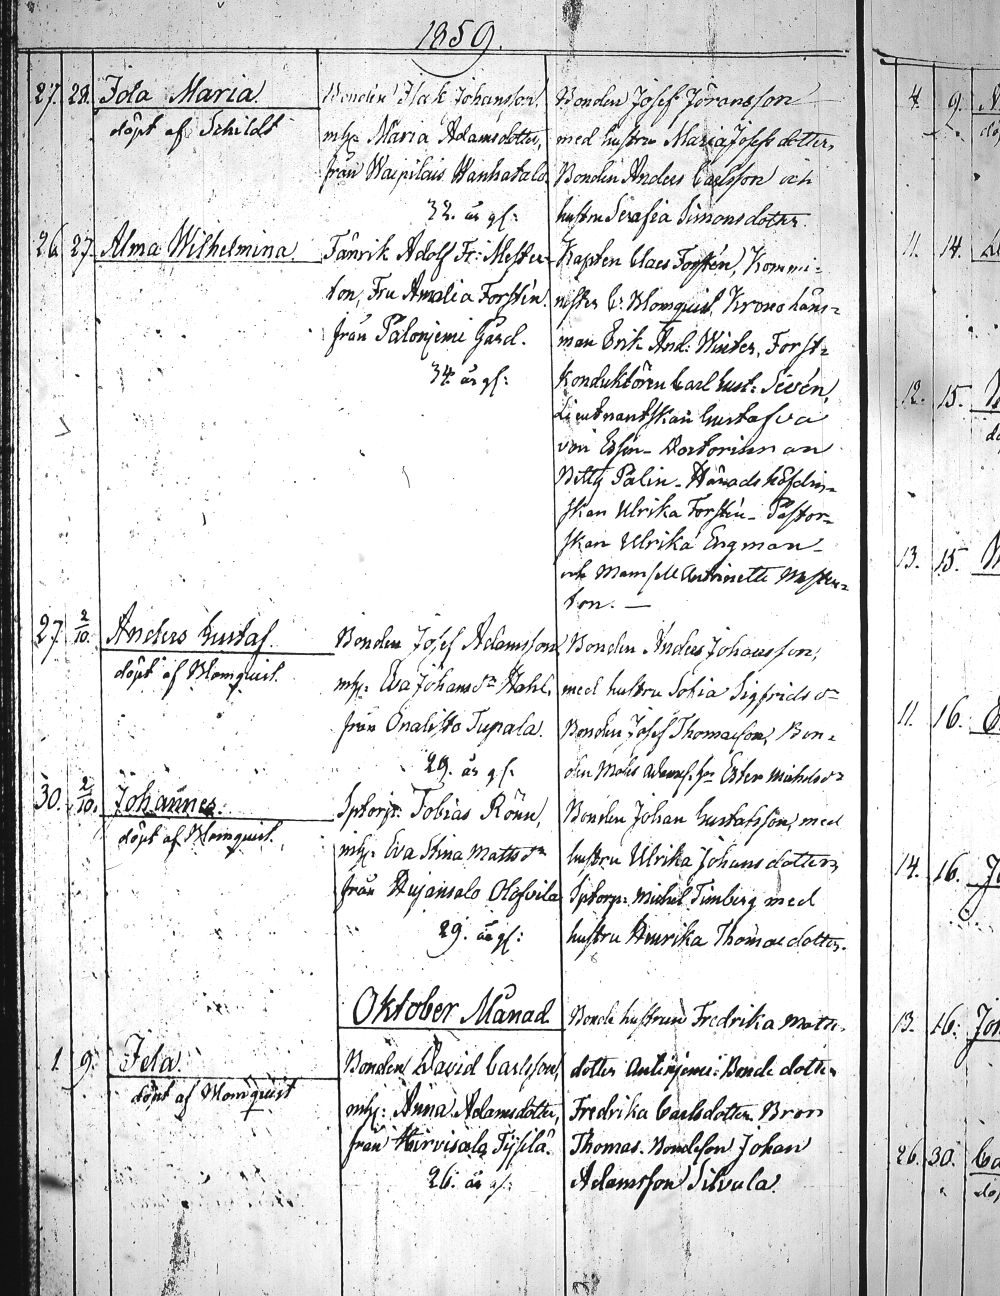 1859.
27. 28. Ida Maria.
döpt af Schildt
Bonden Isak Johansson,
mh: Maria Adamsdotter,
från Waipilais Wanhatalo
32. år gl:
Bonden Josef Göransson
med hustru Maria Josefsdotter,
Bonden Anders Carlsson och
hustru Serafia Simonsdotter.
26. 27. Alma Wilhelmina.
Fänrik Adolf Fr: Mester-
ton, Fru Amalia Forstén.
från Palonjemi Gård.
34 år gl:
Kapten Claes Forstén, Kommi-
nister C: Blomquist, Krono Läns-
man Erik And: Winter, Forst-
konduktören Carl Gust: Sevén,
Lieutnantskan Gustafva
von Essen - Doctorinnan
Betty Palin - Häradshöfdin-
skan Ulrika Forstén - Pastor-
skan Ulrika Engman -
och Mamsell Antoinette Mester-
ton. —
27. 2/10. Anders Gustaf.
döpt af Blomquist.
Bonden Josef Adamsson
mh: Eva Johansdr Stahl,
från Onalisto Tupala.
29. år gl.
Bonden Anders Johansson,
med hustru Sofia Sigfridsdr
Bonden Josef Thomasson, Bon-
den Mats Adamss: hr Ester Michelsdr
30. 2/10. Johannes.
döpt af Blomquist.
Sptorp: Tobias Rönn,
mh: Eva Stina Mattsdr
från Hujansalo Olofvila
29. år gl:
Bonden Johan Gustafsson, med
hustru Ulrika Johansdotter,
Sptorp: Michel Timberg med
hustru Henrika Thomaedotter.
Oktober Månad.
1. 9. Ida.
döpt af Blomquist
Bonden David Carlsson,
mh: Anna Adamsdotter,
från Hirvisalo Tyfilä.
26. år gl:
Bonde hustrun Fredrika Matts-
dotter Bonde dotter
Fredrika Carlsdotter. Bron
Thomas. Bondeson Johan
Adamsson Silvula.
4. 9.
11. 14.
12. 15.
13. 15.
11. 16.
14. 16.
13. 16.
26. 30.